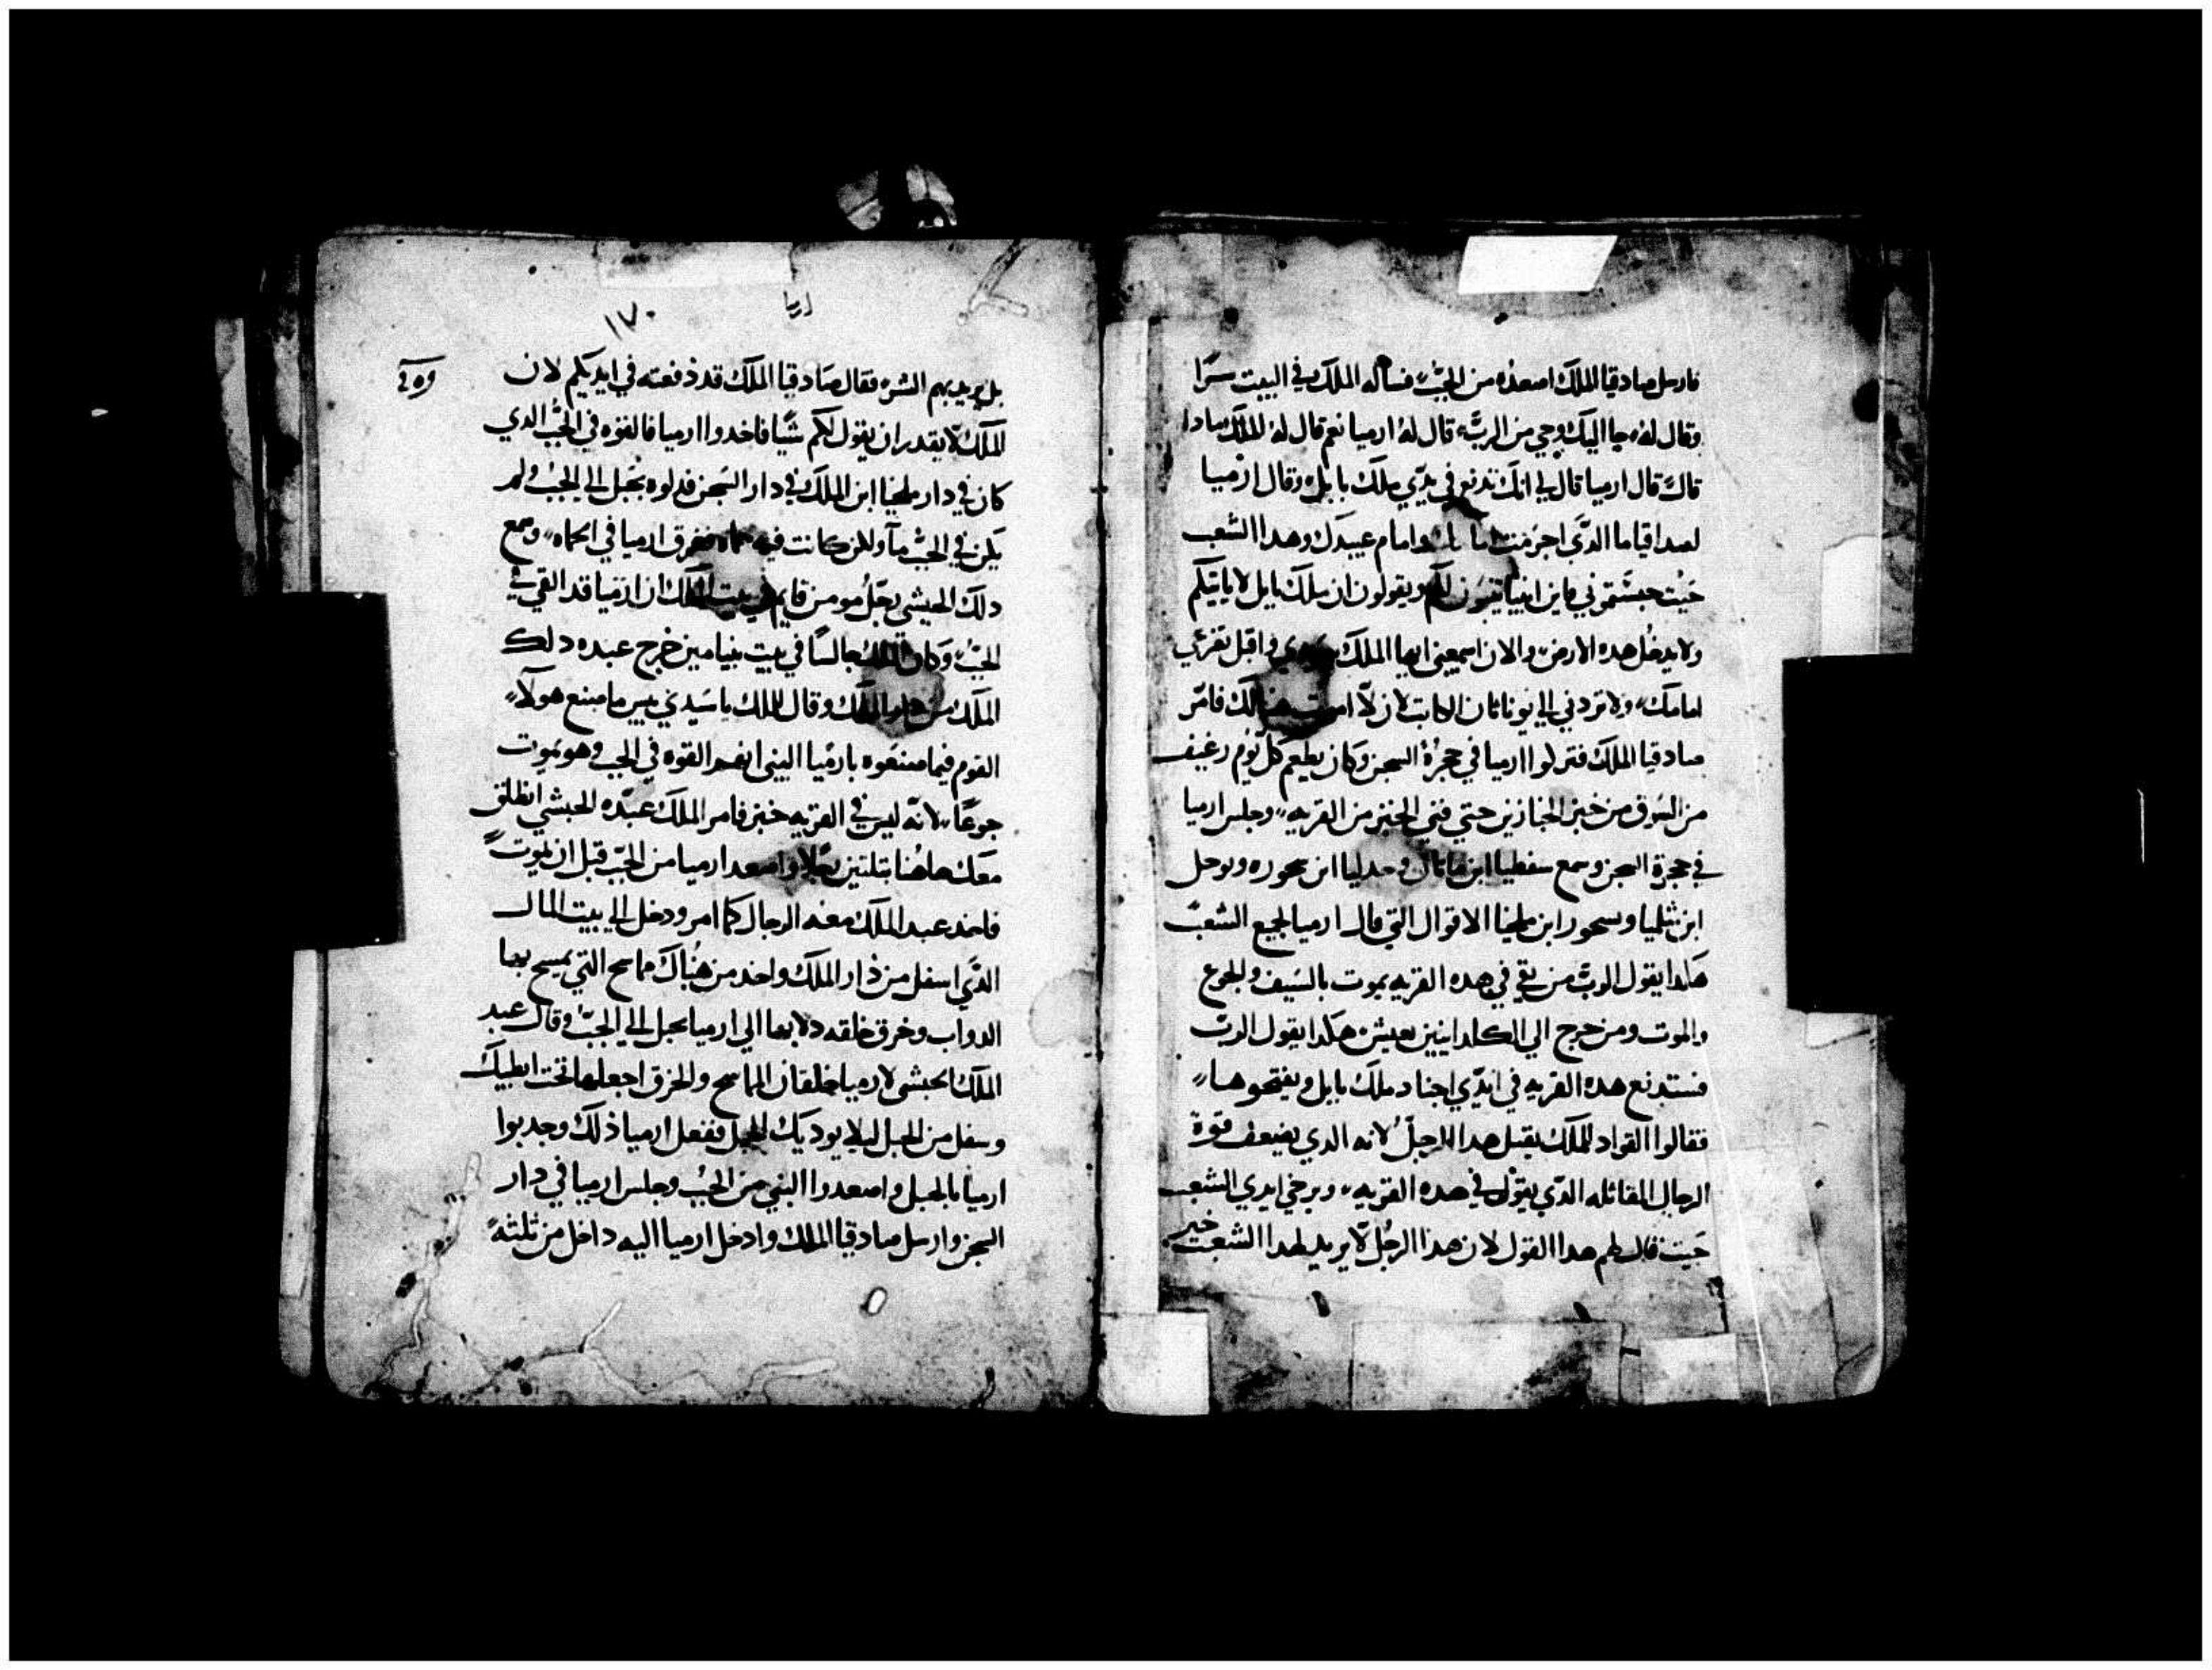 فارسل صادقيا الملك اصعده من الجب فساله الملك في البيت سرًا
وقال له جا اليك وحي من الرب قال له ارميا نعم قال له الملك مادا
قال قال ارميا قال لي انك تدفع في يدي ملك بابل وقال ارميا
لصداقيا ما الدي اجرمت امامك وامام عبيدك وهدا الشعب
حيت حبستموني فاين انبيا لكم ويقولون ان ملك بابل لا ياتيكم
ولا يدخل هده الارض والان اسمعني ايها الملك واقبل تضرعي
امامك ولا تردني الي يوناتان الكاتب لان لا اموت هنالك فامر
صادقيا الملك فنزلوا ارميا في حجرة السجن وكان يطعم كل يوم رغيف
من السوق من خبز الخبازين حتي فني الخبز من القريه وجلس ارميا
في حجرة السجن وسمع سفطيا ابن ماتان و جدليا ابن سحوره ويوحل
ابن شليا وسحور ابن ملخيا الاقوال التي قال ارميا لجميع الشعب
هكدا يقول الرب من بقي في هده القريه يموت بالسيف والجوع
والموت ومن خرج الي الكلدانيين يعيش هكدا يقول الرب
فستدفع هده القريه في ايدي اجناد ملك بابل ويفتحوها
فقالوا القواد للملك يقتل هدا الرجل لانه الدي يضعف قوة
الرجال المقاتله الدي يقول في هده القريه ويرخي ايدي الشعب
حيت قال لهم هدا القول لان هدا الرجل لا يريد لهدا الشعب خير
ارميا
١٧٠
وه في
بل يريد بهم الشر فقال صادقيا الملك قد دفعته في ايديكم لان
الملك لا يقدر ان يقول لكم شيا فاخدوا ارميا فالقوه في الجب الدي
كان في دار ملخيا ابن الملك في دار السجن فدلوه بحبل الي الجب ولم
يكن في الجب ما ولكن كانت فيه حماه فغرق ارميا في الحماه وسمع
دلك الحبشي رجل مومن قايم في بيت الملك ان ارميا قد القي في
الجب وكان الملك جالسًا في بيت بنيامين خرج عبده دلك
الملك من دار الملك وقال للملك يا سيدي بيس ما صنع هولا
القوم فيما صنعوه بارميا النبي انهم القوه في الجب وهو يموت
جوعًا لانه ليس في القريه خبز فامر الملك عبده الحبشي انطلق
معك هاهنا بتلتين رجلا واصعد ارميا من الجب قبل ان يموت
فاخد عبد الملك معه الرجال كما امر ودخل الي بيت المال
الدي اسفل من دار الملك واخد من هناك مماسح التي يمسح بها
الدواب وخرق خلقه دلا بها الي ارميا بحبل الي الجب وقال عبد
الملك الحبشي لارميا خلقان المماسح والخرق اجعلها تحت ابطيك
وسفل من الحبل ليلا يوديك الحبل ففعل ارميا دلك وجدبوا
ارميا بالحبل واصعدوا النبي من الجب وجلس ارميا في دار
السجن وارسل صادقيا الملك وادخل ارميا اليه داخل من تلثه